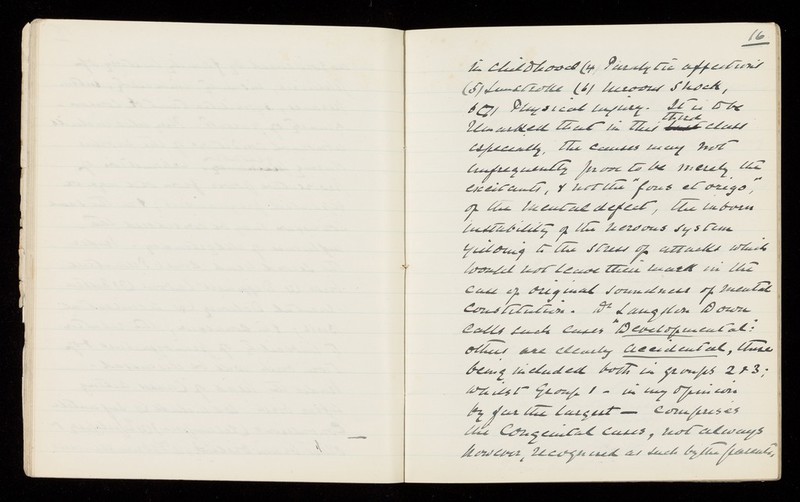 16
in childhood (4) Paralytic affections
(5) Sunstroke (6) Nervous Shock,
& (7) Physical injury. It is to be
remarked that in this last third class
especially, the causes may not
unfrequently prove to be merely the
excitants, & not the "fons et origo",
of the mental defect, the inborn
instability of the nervous system
yielding to the stress of attacks which
would not leave their mark in the
case of original soundness of mental
constitution. Dr Langdon Down
calls such cases "Developmental":
others are clearly accidental, these
being included both in groups 2 & 3;
whilst Group 1 - in my opinion
by far the largest — comprises
the Congenital cases, not always
however, recognised as such by the parents,